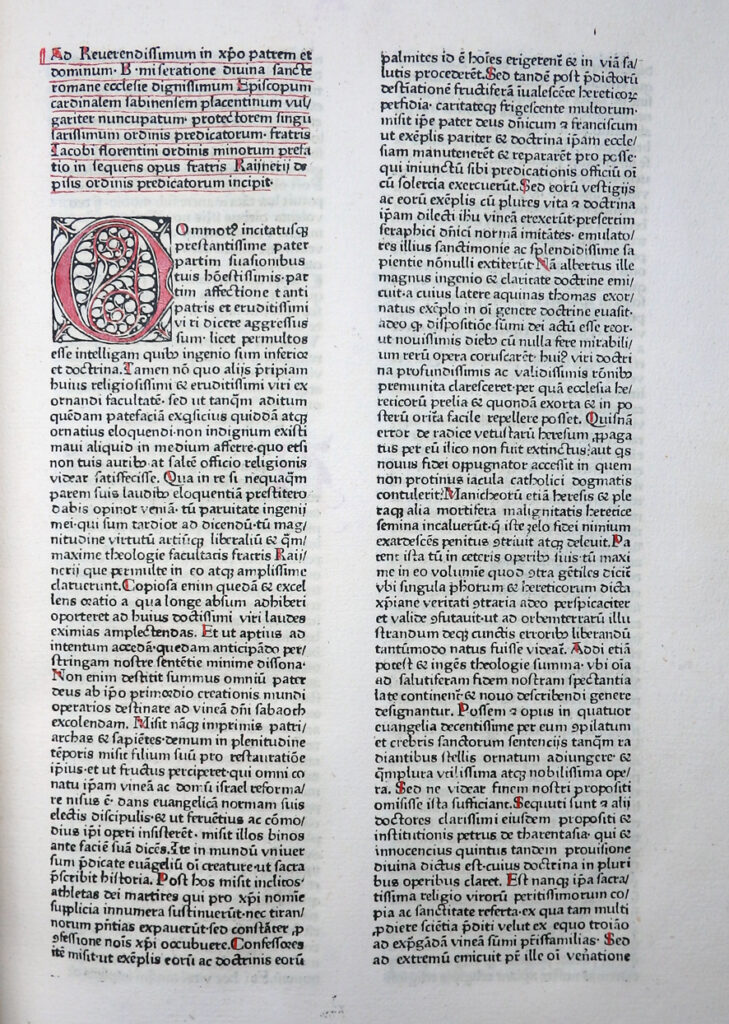 Ad Reuerendissimum in xp̄o patrem et
dominum· B· miseratione diuina sancte
romane ecclesie dignissimum Episcopum
cardinalem sabinensem placentinum vul/
gariter nuncupatum· protectorem singu
larissimum ordinis predicatorum· fratris
Iacobi florentini ordinis minorum prefa
tio in sequens opus fratris Raijnerij de
pisis ordinis predicatorum incipit·
COmmotꝰ incitatusqꝫ
prestantissime pater
partim suasionibus
tuis hōestissimis· par
tim affectione tanti
patris et eruditissimi
viri dicere aggressus
sum· licet permultos
esse intelligam quibꝫ ingenio sum inferior
et doctrina. Tamen nō quo alijs p̄ripiam
huius religiosissimi & eruditissimi viri ex
ornandi facultatē· sed ut tanqm̄ aditum
quēdam patefaciā exqsicius quiddā atqꝫ
ornatius eloquendi· non indignum existi
maui aliquid in medium afferre· quo etsi
non tuis auribꝫ at saltē officio religionis
videar satisfecisse. Qua in re si nequaqm̄
parem suis laudibꝫ eloquentiā prestitero
dabis opinor veniā· tū paruitate ingenij
mei· qui sum tardior ad dicendū· tū mag/
nitudine virtutū artiūqꝫ liberaliū & qm̄/
maxime theologie facultatis fratris Raij/
nerij que permulte in eo atqꝫ amplissime
claruerunt. Copiosa enim quedā & excel
lens oratio a qua longe absum adhiberi
oporteret ad huius doctissimi viri laudes
eximias amplectendas. Et ut aptius ad
intentum accedā· quedam anticipādo per/
stringam nostre sentētie minime dissona·
Non enim destitit summus omniū pater
deus ab ip̄o primordio creationis mundi
operarios destinare ad vineā dn̄i sabaoth
excolendam. Misit nāqꝫ imprimis patri/
archas & sapiētes· demum in plenitudine
tēporis misit filium suū pro restauratiōe
ip̄ius· et ut fructus perciperet· qui omni co
natu ip̄am vineā ac domū israel reforma/
re nisus ē· dans euangelicā normam suis
electis discipulis· & ut feruētius ac cōmo/
dius ip̄i operi insisterēt· misit illos binos
ante faciē suā dicēs. Ite in mundū vniuer
sum p̄dicate euāgeliū oī creature· ut sacra
p̄scribit historia. Post hos misit inclitos
athletas dei martires qui pro xp̄i nomīe
supplicia innumera sustinuerūt· nec tiran/
norum pn̄tias expauerūt· sed constāter ꝓ
ꝯfessione noīs xp̄i occubuere. Confessores
itē misit· ut exēplis eorū ac doctrinis eorū
palmites id ē hoīes erigerent & in viā sa/
lutis procederēt. Sed tandē post p̄dictorū
destiatione fructiferā iualescēte hereticoꝝ
perfidia· caritateqꝫ frigescente multorum·
misit ip̄e pater deus dn̄icum & franciscum
ut exēplis pariter & doctrina ip̄am eccle/
siam manutenerēt & repararēt pro posse·
qui iniunctū sibi predicationis officiū oī
cū solercia exercuerūt. Sed eorū vestigijs
ac eorū exēplis cū plures vita & doctrina
ip̄am dilecti ihū vineā erexerūt· presertim
seraphici dn̄ici normā imitātes· emulato/
res illius sanctimonie ac splendidissime sa
pientie nōnulli extiterūt. Nā albertus ille
magnus ingenio & claritate doctrine emi/
cuit· a cuius latere aquinas thomas exor/
natus exēplo in oī genere doctrine euasit·
adeo qꝫ dispositiōe sūmi dei actū esse reor·
ut nouissimis diebꝫ cū nulla fere mirabili/
um rerū opera coruscarēt· huiꝰ viri doctri
na profundissimis ac validissimis rōnibꝫ
premunita claresceret· per quā ecclesia he/
reticorū prelia & quondā exorta & in po
sterū oritā facile repellere posset. Quisnā
error de radice vetustarū heresum ꝓpaga
tus per eū ilico non fuit extinctus; aut qs
nouus fidei oppugnator accessit in quem
non protinus iacula catholici dogmatis
contulerit? Manicheorū etiā heresis & ple
raqꝫ alia mortifera malignitatis heretice
semina incaluerūt· q̄ iste zelo fidei nimium
exardescēs penitus ꝯtriuit atqꝫ deleuit. Pa
tent ista tū in ceteris operibꝫ suis· tū maxi
me in eo volumīe quod ꝯtra gētiles dicit̄
vbi singula ph̄orum & hereticorum dicta
xp̄iane veritati ꝯtraria adeo perspicaciter
et valide ꝯfutauit· ut ad orbem terrarū illu
strandum deqꝫ cunctis erroribꝫ liberandū
tantūmodo natus fuisse videat̄. Addi etiā
potest & ingēs theologie summa· vbi oīa
ad salutiferam fidem nostram spectantia
late continent̄ & nouo describendi genere
designantur. Possem & opus in quatuor
euangelia decentissime per eum ꝯpilatum
et crebris sanctorum sentencijs tanqm̄ ra
diantibus stellis ornatum adiungere· &
qm̄plura vtilissima atqꝫ nobilissima ope/
ra. Sed ne videar finem nostri propositi
omisisse ista sufficiant. Sequuti sunt & alij
doctores clarissimi eiusdem propositi &
institutionis petrus de tharentasia· qui &
innocencius quintus tandem prouisione
diuina dictus est· cuius doctrina in pluri
bus operibus claret. Est nanqꝫ ip̄a sacra/
tissima religio virorū peritissimorum co/
pia ac sanctitate referta· ex qua tam multi
ꝓdiere sciētia p̄diti velut ex equo troiāo
ad exp̄gādā vineā sūmi pr̄isfamilias· Sed
ad extremū emicuit pr̄ ille oī venatione